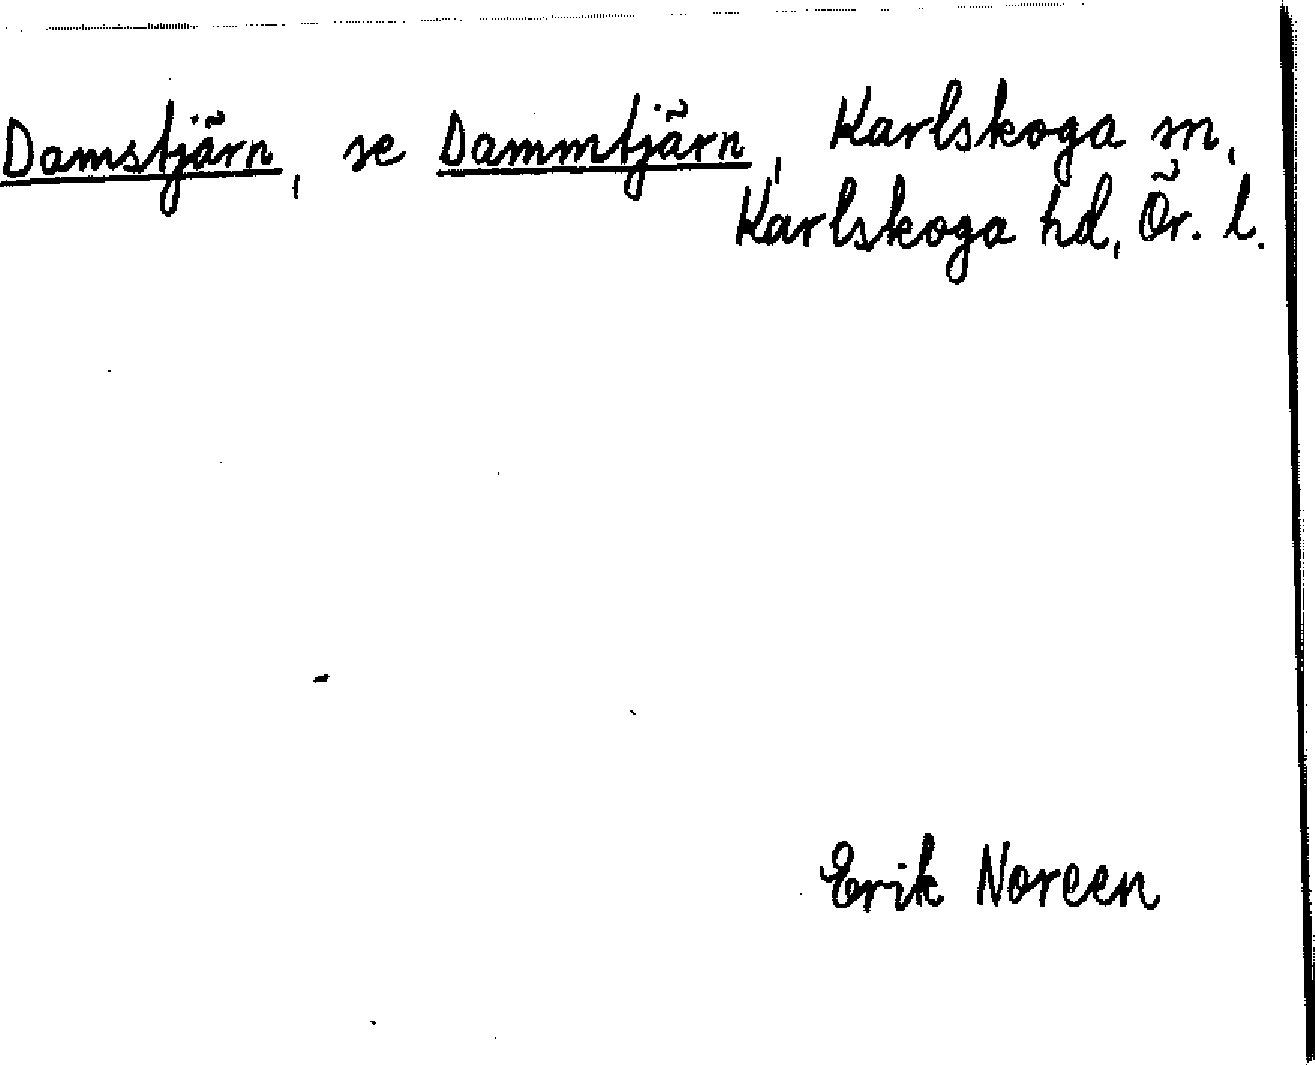 Damstjärn, se Dammtjärn, Karlskoga sn,
Karlskoga hd, Ör. l.
Erik Noreen